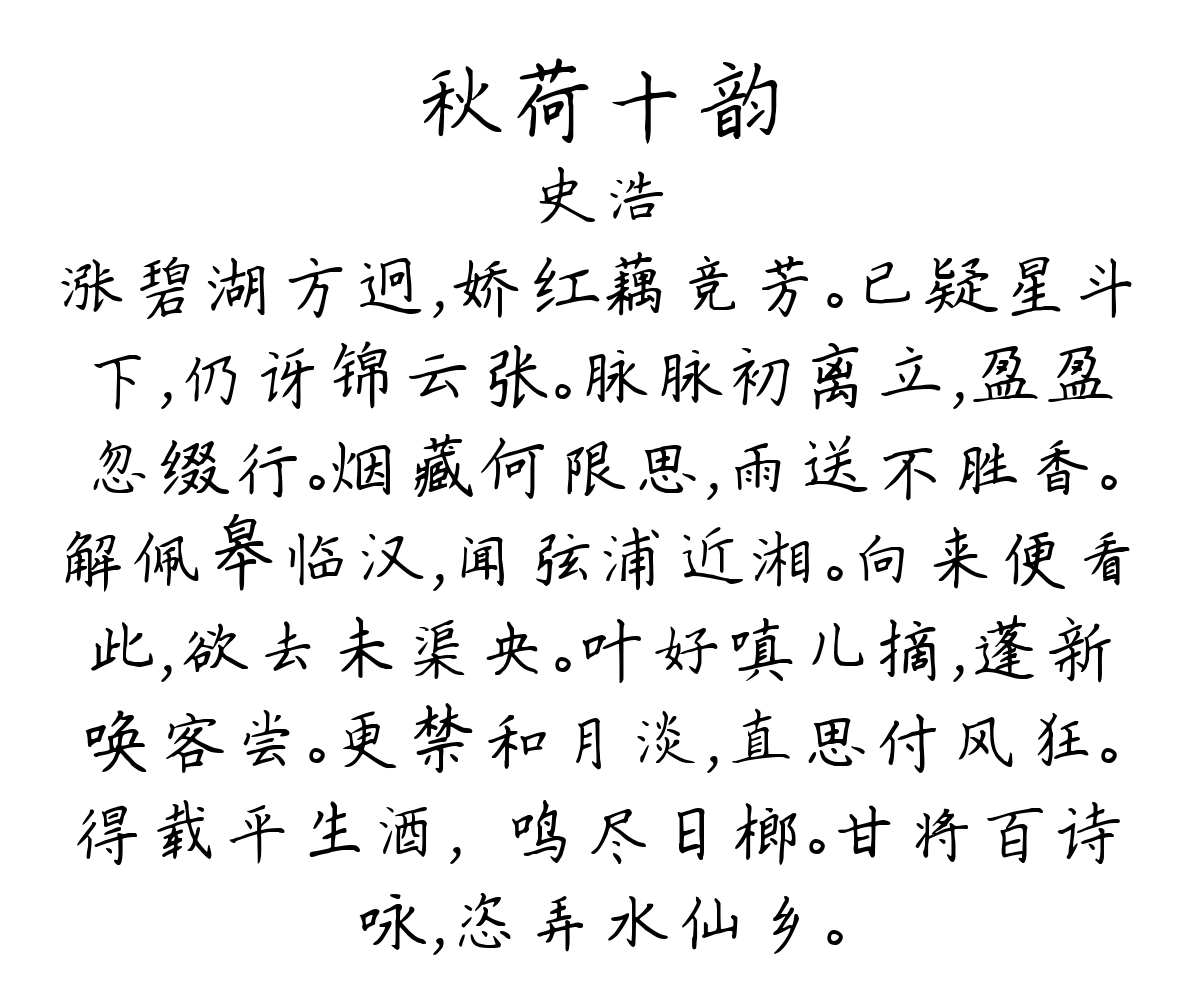 秋荷十韵
史浩
涨碧湖方迥,娇红藕竞芳。已疑星斗
下,仍讶锦云张。脉脉初离立,盈盈
忽缀行。烟藏何限思,雨送不胜香。
解佩皋临汉,闻弦浦近湘。向来便看
此,欲去未渠央。叶好嗔儿摘,蓬新
唤客尝。更禁和月淡,直思付风狂。
得载平生酒,鸣尽日榔。甘将百诗
咏,恣弄水仙乡。